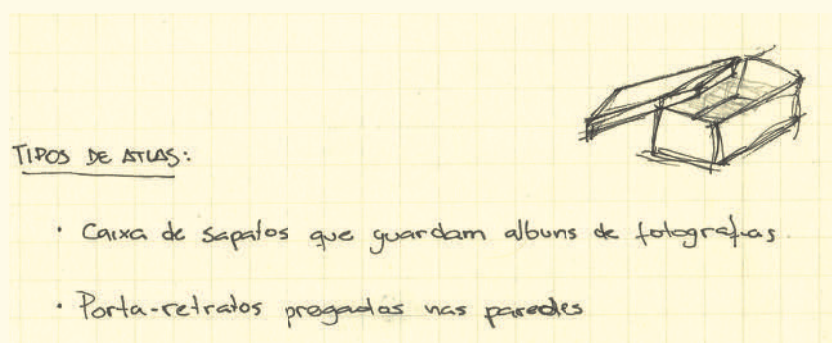 TIPOS DE ATLAS:
· Caixa de sapatos que guardam albuns de fotografias.
· Porta-retratos pregados nas paredes